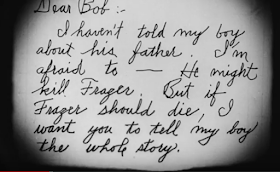 Dear Bob :-
I haven't told my boy
about his father. I'm
afraid to — He might
kill Frager. But if
Frager should die, I
want you to tell my boy
the whole story.